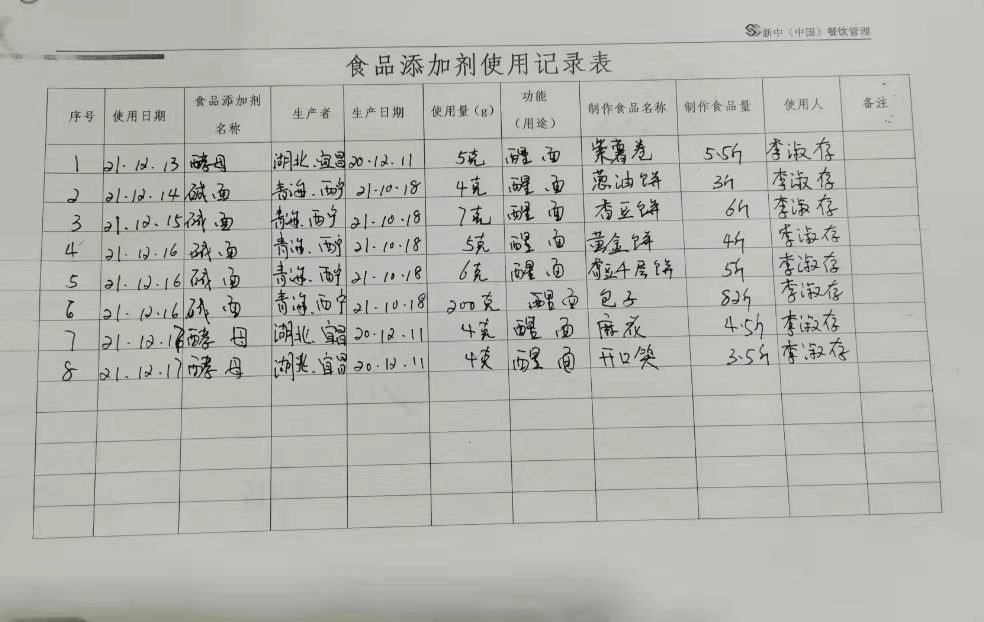 新中（中国）餐饮管理
食品添加剂使用记录表
序号 使用日期 食品添加剂名称 生产者 生产日期 使用量(g) 功能（用途） 制作食品名称 制作食品量 使用人 备注
1 21.12.13 酵母 湖北.宜昌 20.12.11 5克 醒面 紫薯卷 5.5斤 李淑存
2 21.12.14 碱面 青海.西宁 21.10.18 4克 醒面 葱油饼 3斤 李淑存
3 21.12.15 碱面 青海.西宁 21.10.18 7克 醒面 香豆饼 6斤 李淑存
4 21.12.16 碱面 青海.西宁 21.10.18 5克 醒面 黄金饼 4斤 李淑存
5 21.12.16 碱面 青海.西宁 21.10.18 6克 醒面 千层饼 5斤 李淑存
6 21.12.16 碱面 青海.西宁 21.10.18 200克 醒面 包子 82斤 李淑存
7 21.12.17 酵母 湖北.宜昌 20.12.11 4克 醒面 麻花 4.5斤 李淑存
8 21.12.17 酵母 湖北.宜昌 20.12.11 4克 醒面 开口笑 3.5斤 李淑存